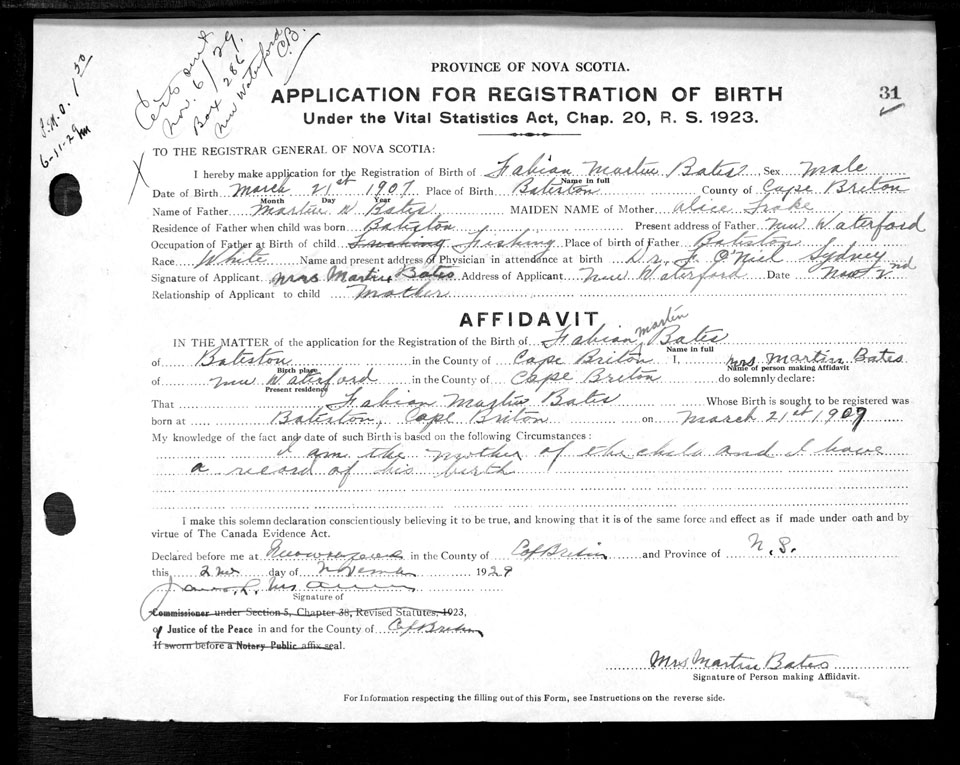 Certs out
Nov. 6/29.
Box 286
New Waterford
C.B.
P.M.O. 1.50
6-11-29
PROVINCE OF NOVA SCOTIA.
APPLICATION FOR REGISTRATION OF BIRTH
31
Under the Vital Statistics Act, Chap. 20, R. S. 1923.
X TO THE REGISTRAR GENERAL OF NOVA SCOTIA:
I hereby make application for the Registration of Birth of Fabian Martin Bates Sex Male
Name in full
Date of Birth March 21st 1907 Place of Birth Bateston County of Cape Briton
Month Day Year
Name of Father Martin W Bates MAIDEN NAME of Mother Alice
Residence of Father when child was born Bateston Present address of Father New Waterford
Occupation of Father at Birth of child Fishing Place of birth of Father Bateston
Race White Name and present address of Physician in attendance at birth Dr. F. O'Niel Sydney
Signature of Applicant Mrs Martin Bates Address of Applicant New Waterford Date Nov 2nd
Relationship of Applicant to child Mother
AFFIDAVIT
IN THE MATTER of the application for the Registration of the Birth of Fabian Martin Bates
Name in full
of Bateston in the County of Cape Briton I, Mrs Martin Bates
Birth place Name of person making Affidavit
of New Waterford in the County of Cape Breton do solemnly declare:
Present residence
That Fabian Martin Bates Whose Birth is sought to be registered was
born at Bateston, Cape Briton on March 21st 1907
My knowledge of the fact and date of such Birth is based on the following Circumstances:
I am the mother of the child and I have
a record of his birth
I make this solemn declaration conscientiously believing it to be true, and knowing that it is of the same force and effect as if made under oath and by
virtue of The Canada Evidence Act.
Declared before me at in the County of C of Breton and Province of N.S.
this 2nd day of November 1929
Signature of
Commissioner under Section 5, Chapter 38, Revised Statutes, 1923,
of Justice of the Peace in and for the County of C of Breton
If sworn before a Notary Public affix seal.
Mrs Martin Bates
Signature of Person making Affidavit.
For Information respecting the filling out of this Form, see Instructions on the reverse side.